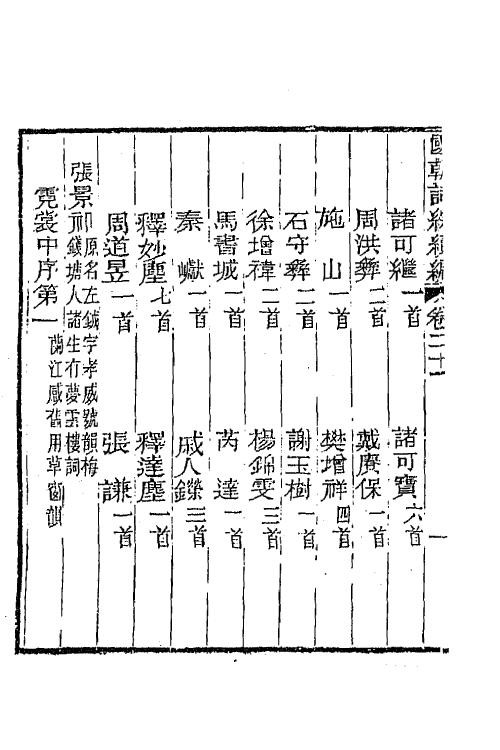 國朝詞綜續編 卷二十 一
諸可繼一首 諸可寶六首
周洪彝二首 戴賡保一首
施山一首 樊增祥四首
石守彝二首 謝玉樹一首
徐增褘二首 楊錦雯三首
馬書城一首 芮達一首
秦巘一首 戚人鑅三首
釋妙塵七首 釋達塵一首
周道昱一首 張謙一首
張景祁 原名左鉞字孝威號韻梅
錢塘人諸生有夢雲樓詞
霓裳中序第一 蘭江感舊用草窗韻